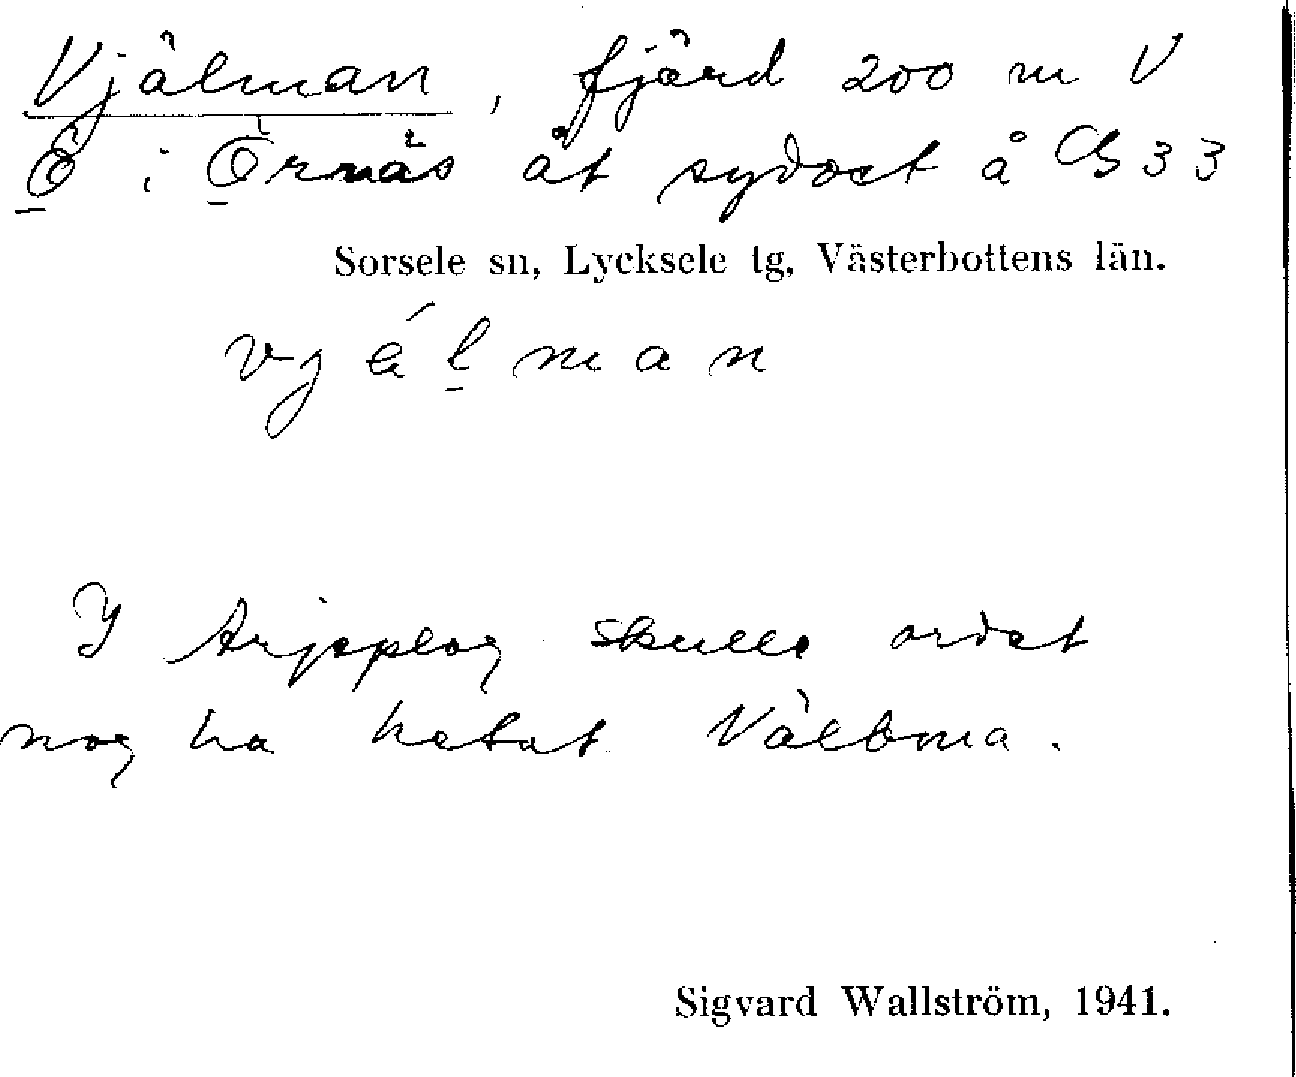 Vjälman, fjärd 200 m V
Ö i Örnäs åt sydost å Cb 33
Sorsele sn, Lycksele tg, Västerbottens län.
vjälman
I Arjeplog skulle ordet
nog ha hetat Välbma.
Sigvard Wallström, 1941.